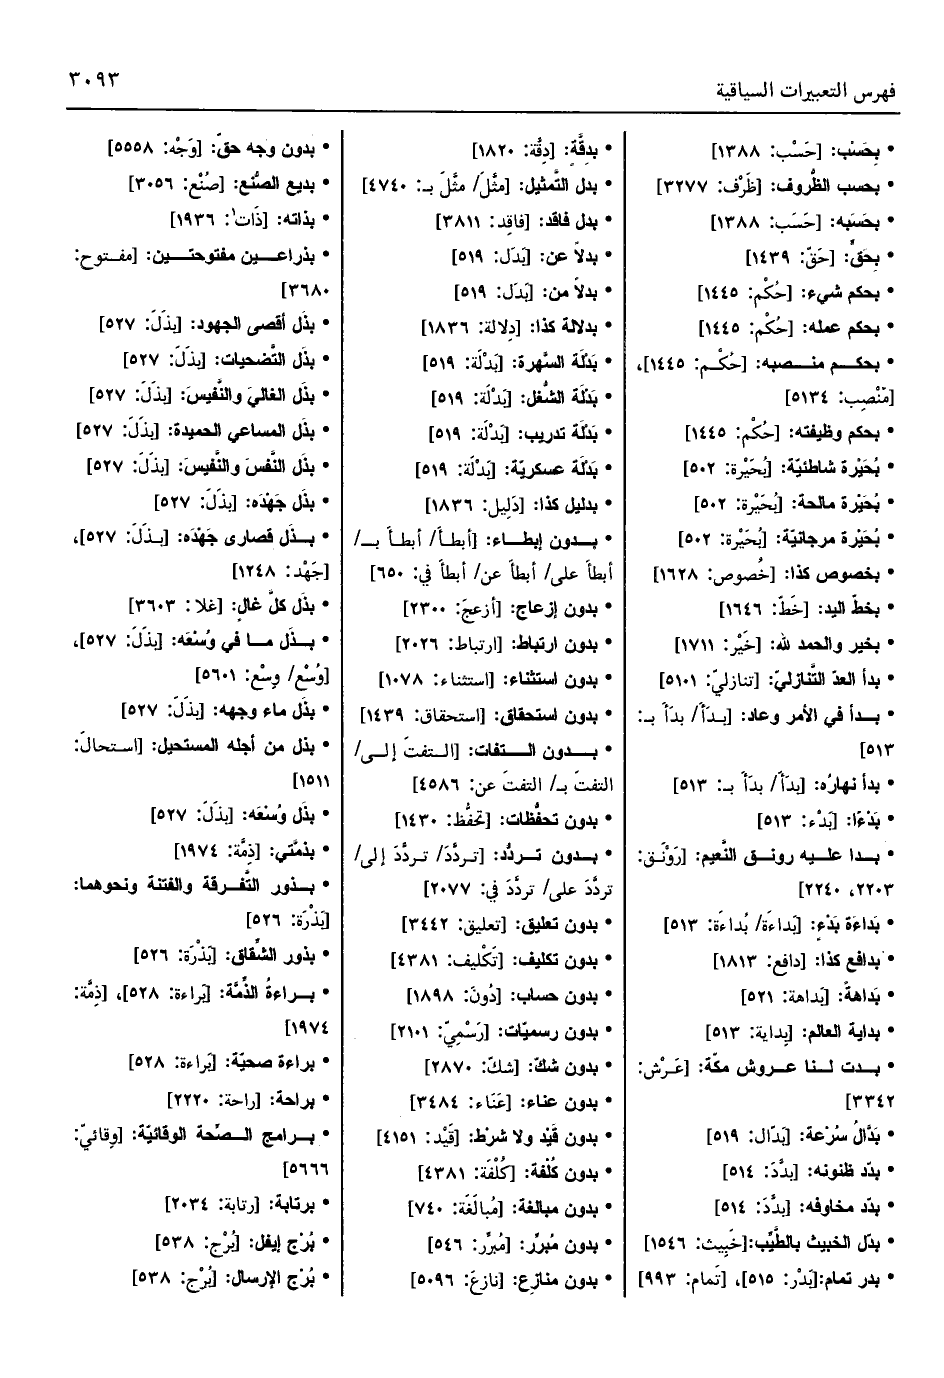 فهرس التعبيرات السياقية
٣٠٩٣
• بِحَسْب: [حَسْب: ١٣٨٨]
• بحسب الظُّروف: [ظَرْف: ٣٢٧٧]
• بحَسَبه: [حَسَب: ١٣٨٨]
• بحَقٍّ: [حَقّ: ١٤٣٩]
• بحكم شيء: [حُكْم: ١٤٤٥]
• بحكم عمله: [حُكْم: ١٤٤٥]
• بحكــم منــصبه: [حُكْـم: ١٤٤٥]،
[مَنْصِب: ٥١٣٤]
• بحكم وظيفته: [حُكْم: ١٤٤٥]
• بُحَيْرة شاطئيّة: [بُحَيْرة: ٥٠٢]
• بُحَيْرة مالحة: [بُحَيْرة: ٥٠٢]
• بُحَيْرة مرجانيّة: [بُحَيْرة: ٥٠٢]
• بخصوص كذا: [خُصوص: ١٦٢٨]
• بخطّ اليد: [خَطّ: ١٦٤٦]
• بخير والحمد لله: [خَيْر: ١٧١١]
• بدأ العدّ التَّنازليّ: [تنازليّ: ٥١٠١]
• بــدأ في الأمر وعاد: [بـدَأَ/ بدَأَ بـ:
٥١٣]
• بدأ نهارُه: [بدَأَ/ بدَأَ بـ: ٥١٣]
• بَدْءًا: [بَدْء: ٥١٣]
• بــدا علــيه رونــق النَّعيم: [رَوْنَـق:
٢٢٠٣، ٢٢٤٠]
• بَداءَة بَدْءٍ: [بَداءَة/ بُداءَة: ٥١٣]
• بدافع كذا: [دافع: ١٨١٣]
• بَداهةً: [بَداهة: ٥٢١]
• بداية العالم: [بِداية: ٥١٣]
• بــدت لــنا عــروش مكّة: [عَـرْش:
٣٣٤٢]
• بَدّالُ سُرْعة: [بَدّال: ٥١٩]
• بدّد ظنونه: [بدَّدَ: ٥١٤]
• بدّد مخاوفه: [بدَّدَ: ٥١٤]
• بدّل الخبيث بالطَّيِّب:[خَبِيث: ١٥٤٦]
• بدر تمام:[بَدْر: ٥١٥]، [تَمام: ٩٩٣]
• بدِقَّة: [دِقَّة: ١٨٢٠]
• بدل التَّمثيل: [مثَّلَ/ مثَّلَ بـ: ٤٧٤٠]
• بدل فاقد: [فاقِد: ٣٨١١]
• بدلاً عن: [بَدَل: ٥١٩]
• بدلاً من: [بَدَل: ٥١٩]
• بدلالة كذا: [دِلالة: ١٨٣٦]
• بَدْلة السَّهرة: [بَدْلَة: ٥١٩]
• بَدْلَة الشُّغل: [بَدْلَة: ٥١٩]
• بَدْلَة تدريب: [بَدْلَة: ٥١٩]
• بَدْلَة عسكريّة: [بَدْلَة: ٥١٩]
• بدليل كذا: [دَلِيل: ١٨٣٦]
• بــدون إبطــاء: [أبطـأَ/ أبطـأَ بــ/
أبطأَ على/ أبطأَ عن/ أبطأَ في: ٦٥٠]
• بدون إزعاج: [أزعجَ: ٢٣٠٠]
• بدون ارتباط: [ارتباط: ٢٠٢٦]
• بدون استثناء: [استثناء: ١٠٧٨]
• بدون استحقاق: [استحقاق: ١٤٣٩]
• بــدون الــتفات: [الـتفتَ إلـى/
التفتَ بـ/ التفتَ عن: ٤٥٨٦]
• بدون تحفُّظات: [تَحفُّظ: ١٤٣٠]
• بــدون تــردُّد: [تـردَّدَ/ تـردَّدَ إلى/
تردَّدَ على/ تردَّدَ في: ٢٠٧٧]
• بدون تعليق: [تعليق: ٣٤٤٢]
• بدون تكليف: [تَكْليف: ٤٣٨١]
• بدون حساب: [دُونَ: ١٨٩٨]
• بدون رسميّات: [رَسْمِيّ: ٢١٠١]
• بدون شكّ: [شكّ: ٢٨٧٠]
• بدون عناء: [عَنَاء: ٣٤٨٤]
• بدون قَيْد ولا شرْط: [قَيْد: ٤١٥١]
• بدون كُلْفة: [كُلْفَة: ٤٣٨١]
• بدون مبالغة: [مُبالَغَة: ٧٤٠]
• بدون مُبرِّر: [مُبرِّر: ٥٤٦]
• بدون منازع: [نازعَ: ٥٠٩٦]
• بدون وجه حقّ: [وَجْه: ٥٥٥٨]
• بديع الصُّنع: [صُنْع: ٣٠٥٦]
• بذاته: [ذَات١: ١٩٣٦]
• بذراعــين مفتوحتــين: [مفـتوح:
٣٦٨٠]
• بذَل أقصى الجهود: [بذَلَ: ٥٢٧]
• بذَل التَّضحيات: [بذَلَ: ٥٢٧]
• بذَل الغاليَ والنَّفيسَ: [بذَلَ: ٥٢٧]
• بذَل المساعي الحميدة: [بذَلَ: ٥٢٧]
• بذَل النَّفسَ والنَّفيسَ: [بذَلَ: ٥٢٧]
• بذَل جَهْدَه: [بذَلَ: ٥٢٧]
• بــذَل قصارى جَهْدَه: [بـذَلَ: ٥٢٧]،
[جَهْد: ١٢٤٨]
• بذَل كلَّ غالٍ: [غلا: ٣٦٠٣]
• بــذَل مــا في وُسْعَه: [بذَلَ: ٥٢٧]،
[وُسْع/ وِسْع: ٥٦٠١]
• بذَل ماء وجهه: [بذَلَ: ٥٢٧]
• بذل من أجله المستحيل: [استحالَ:
١٥١١]
• بذَل وُسْعَه: [بذَلَ: ٥٢٧]
• بذمَّتي: [ذِمَّة: ١٩٧٤]
• بــذور التَّفــرقة والفتنة ونحوهما:
[بَذْرَة: ٥٢٦]
• بذور الشِّقاق: [بَذْرَة: ٥٢٦]
• بــراءةُ الذِّمَّة: [بَراءة: ٥٢٨]، [ذِمَّة:
١٩٧٤]
• براءة صحيّة: [بَراءة: ٥٢٨]
• براحة: [راحة: ٢٢٢٠]
• بــرامج الــصّحة الوقائيّة: [وِقائيّ:
٥٦٦٦]
• برتابة: [رتابة: ٢٠٣٤]
• بُرْج إيفل: [بُرْج: ٥٣٨]
• بُرْج الإرسال: [بُرْج: ٥٣٨]